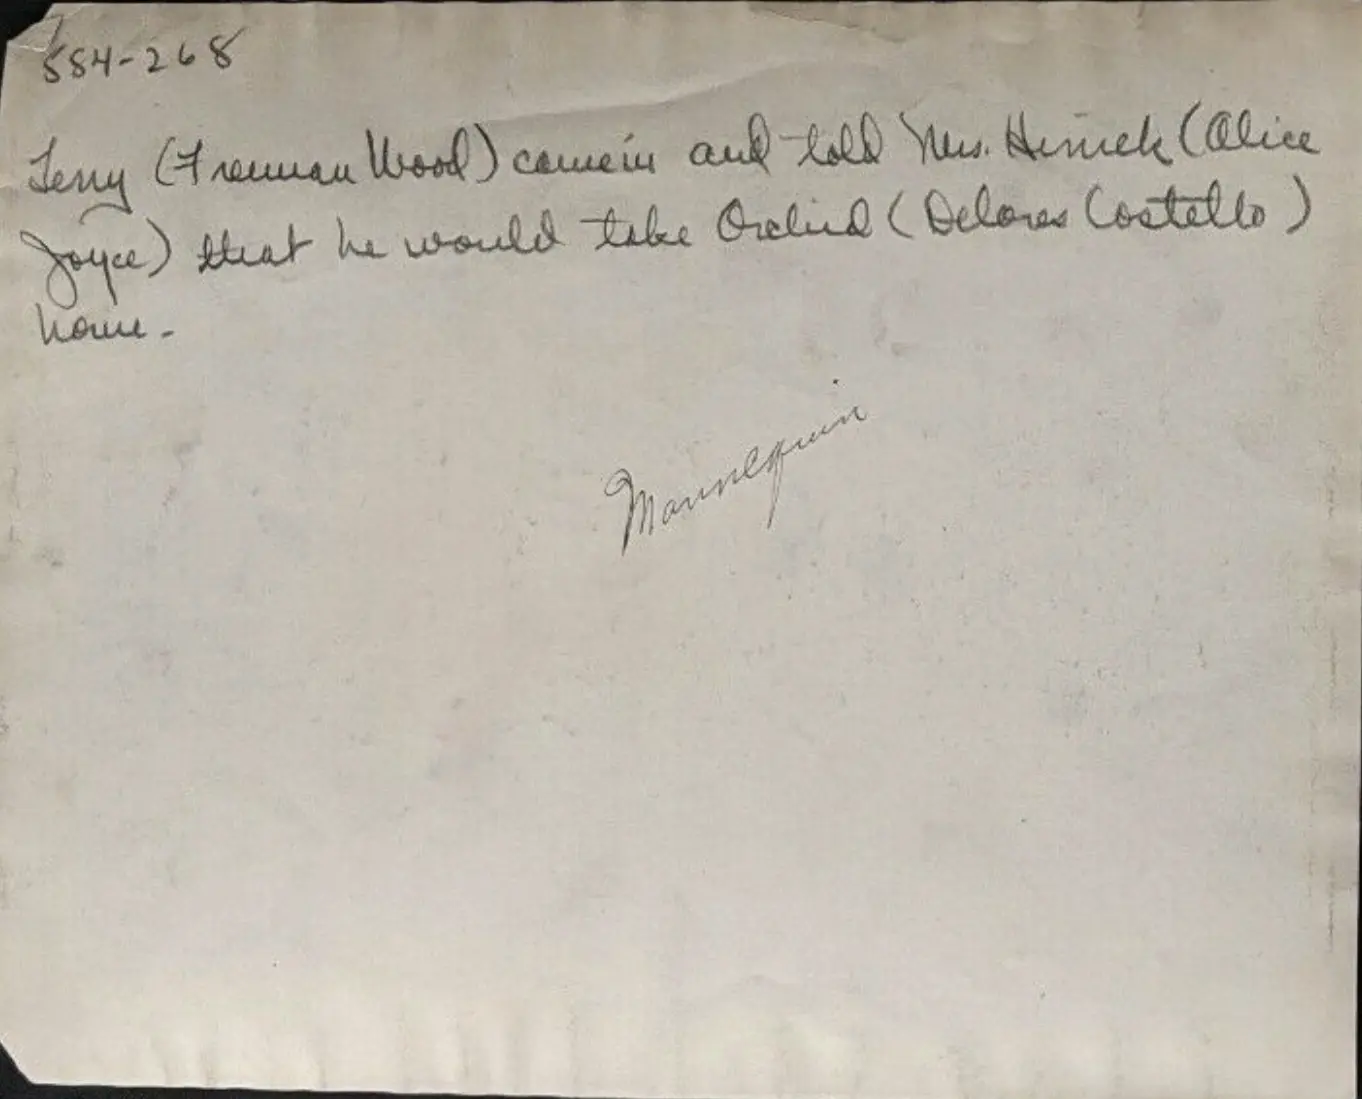 554-268
Terry (Freeman Wood) came in and told Mrs. Herrick (Alice
Joyce) that he would take Orchid (Delores Costello)
home -
Mannequin